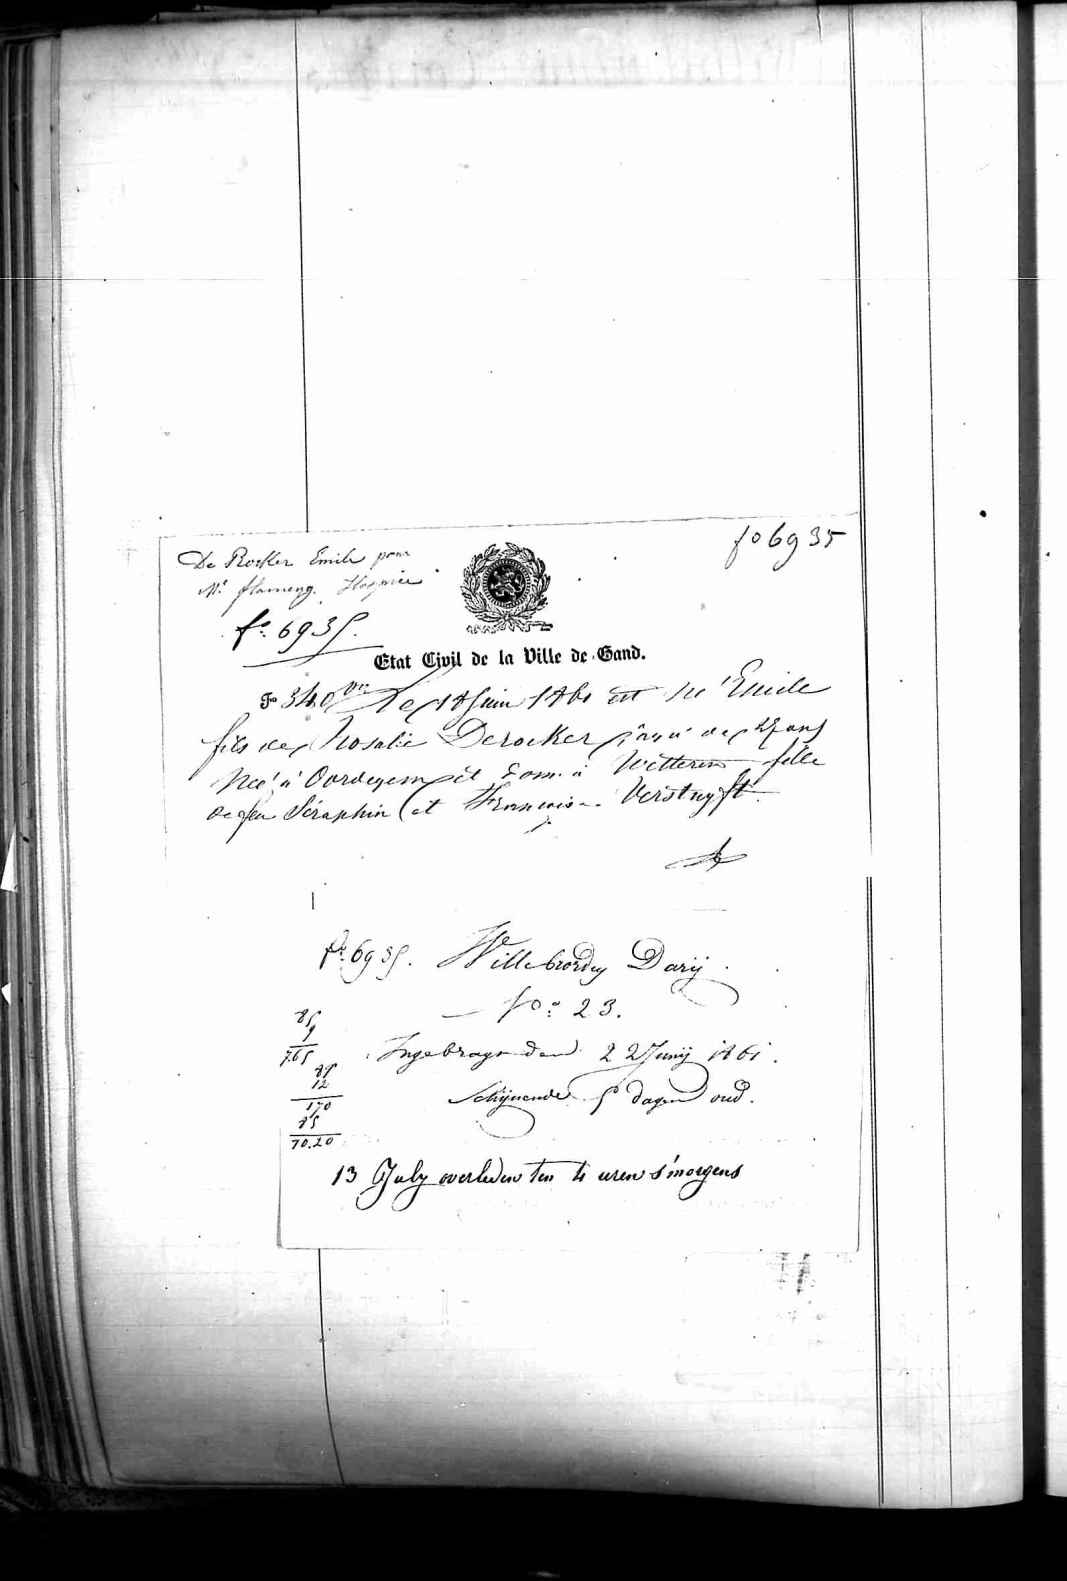 De Rocker Emile pour
fo 6935
Mr flameng. Hospice
fo. 6935.
Etat Civil de la Ville de Gand.
Fo 340 Le 18 Juin 1861 est né Emile
fils de Rosalie Derocker agée de 25 ans
Née à Oordegem et dom. à Wetteren fille
de feu Séraphin et Françoise Verstuyft.
fo. 6935. Willebrordus Darij.
No: 23.
85
9
7.65
Ingebragt den 22 Junij 1861.
85
12
Schijnende 5 dagen oud.
170
85
70.20
13 July overleden ten 4 uren s'morgens